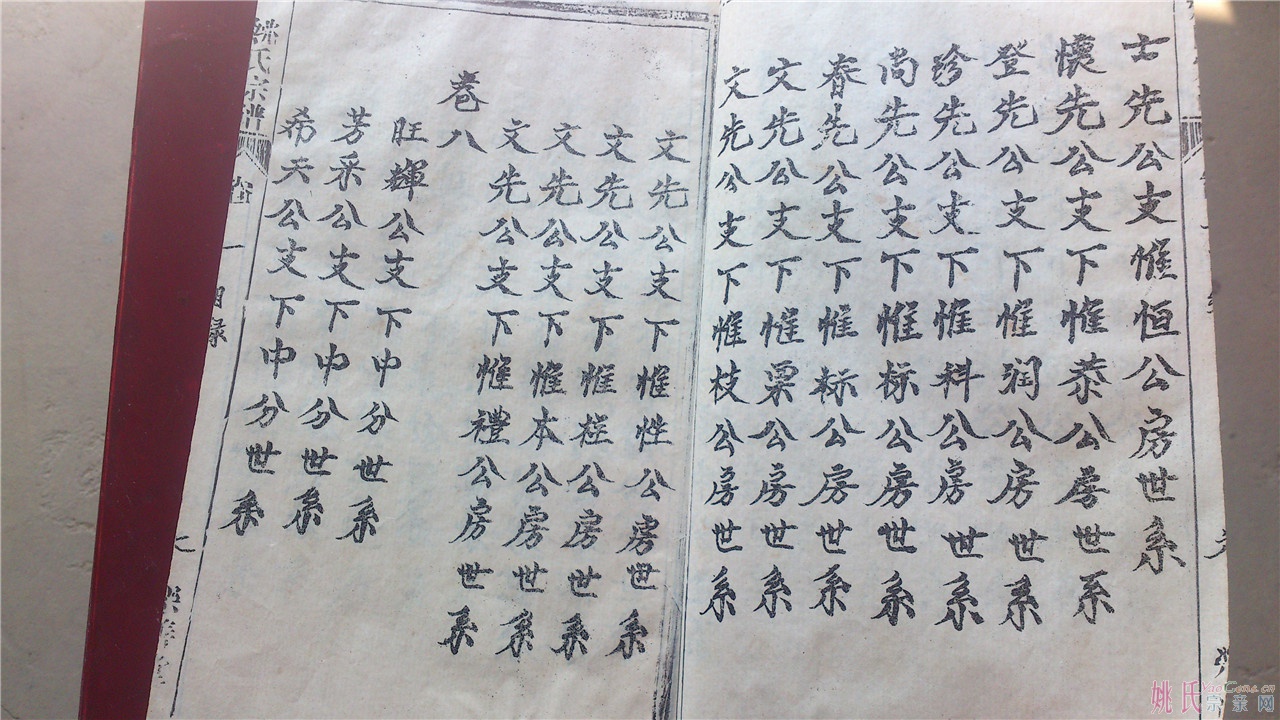 士先公支惟恒公房世系
懷先公支下惟恭公房世系
登先公支下惟润公房世系
珍先公支下惟科公房世系
尚先公支下惟标公房世系
春先公支下惟标公房世系
文先公支下惟栗公房世系
文先公支下惟枝公房世系
文先公支下惟性公房世系
文先公支下惟柱公房世系
文先公支下惟本公房世系
文先公支下惟禮公房世系
卷八
旺輝公支下中分世系
芳采公支下中分世系
希天公支下中分世系
姚氏宗譜
卷一
目録
七
姚氏宗亲网
YaoGens.cn